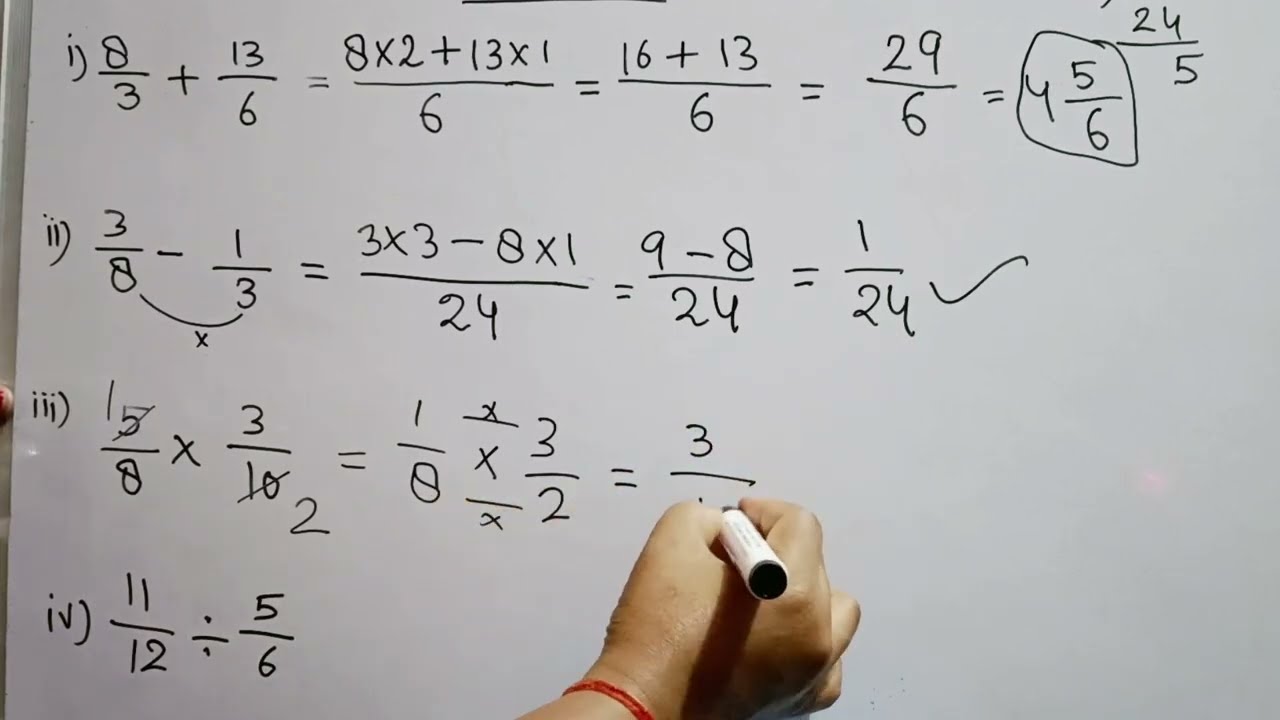 i) 8/3 + 13/6 = (8×2+13×1)/6 = (16+13)/6 = 29/6 = 4 5/6   24/5
ii) 3/8 - 1/3 = (3×3-8×1)/24 = (9-8)/24 = 1/24 ✓
x
iii) 1 5/8 × 3/10 2 = 1/8 × 3/2 = 3/
x x
iv) 11/12 ÷ 5/6